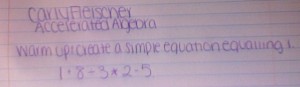 Carly Fleischer
Accelerated Algebra
Warm up: create a simple equation equalling 1.
1 + 8 - 3 * 2 - 5